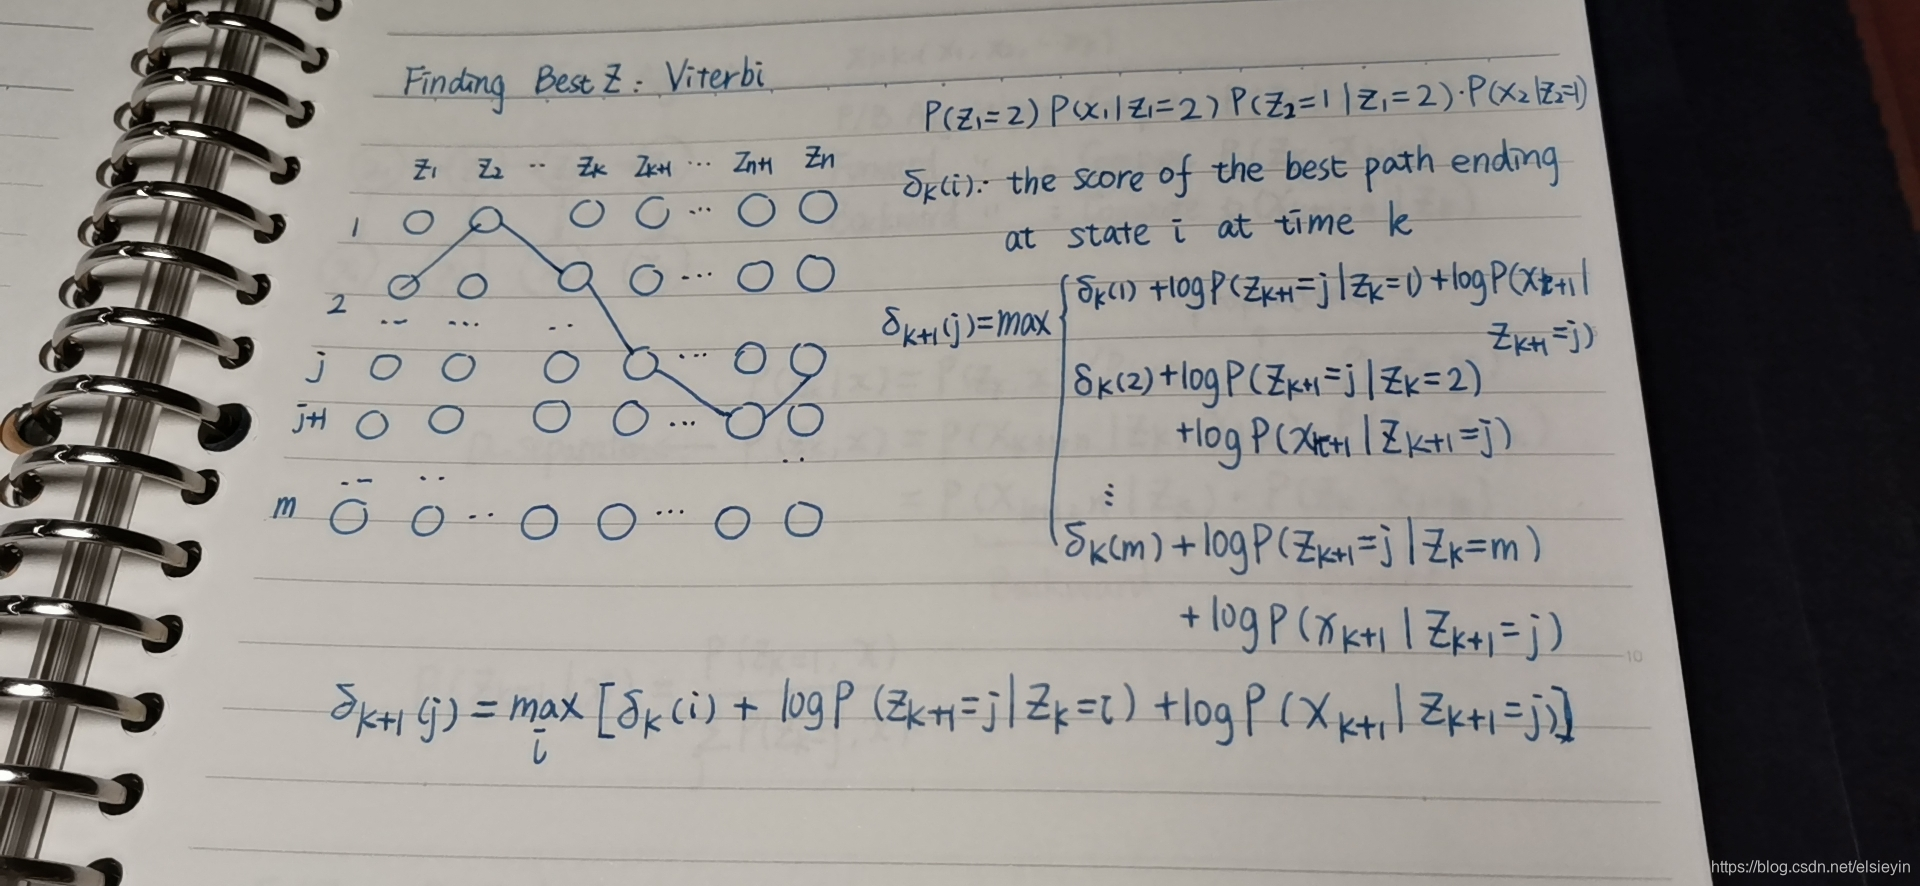 Finding Best Z: Viterbi
P(z₁=2) P(x₁|z₁=2) P(z₂=1|z₁=2)·P(x₂|z₂=1)
z₁ z₂ ·· zₖ zₖ₊₁ ··· zₙ₊₁ zₙ
δₖ(i): the score of the best path ending
at state i at time k
1 ···
2 ···
·· ··· ··
j ···
j+1 ···
··
·· ··
m ·· ···
δₖ₊₁(j)=max
δₖ(1) +logP(zₖ₊₁=j|zₖ=1)+logP(xₖ₊₁|
zₖ₊₁=j)
δₖ(2)+logP(zₖ₊₁=j|zₖ=2)
+logP(xₖ₊₁|zₖ₊₁=j)
⋮
δₖ(m)+logP(zₖ₊₁=j|zₖ=m)
+logP(xₖ₊₁|zₖ₊₁=j)
10
δₖ₊₁(j) = max [δₖ(i) + logP (zₖ₊₁=j|zₖ=i) +logP (xₖ₊₁|zₖ₊₁=j)]
i
https://blog.csdn.net/elsieyin